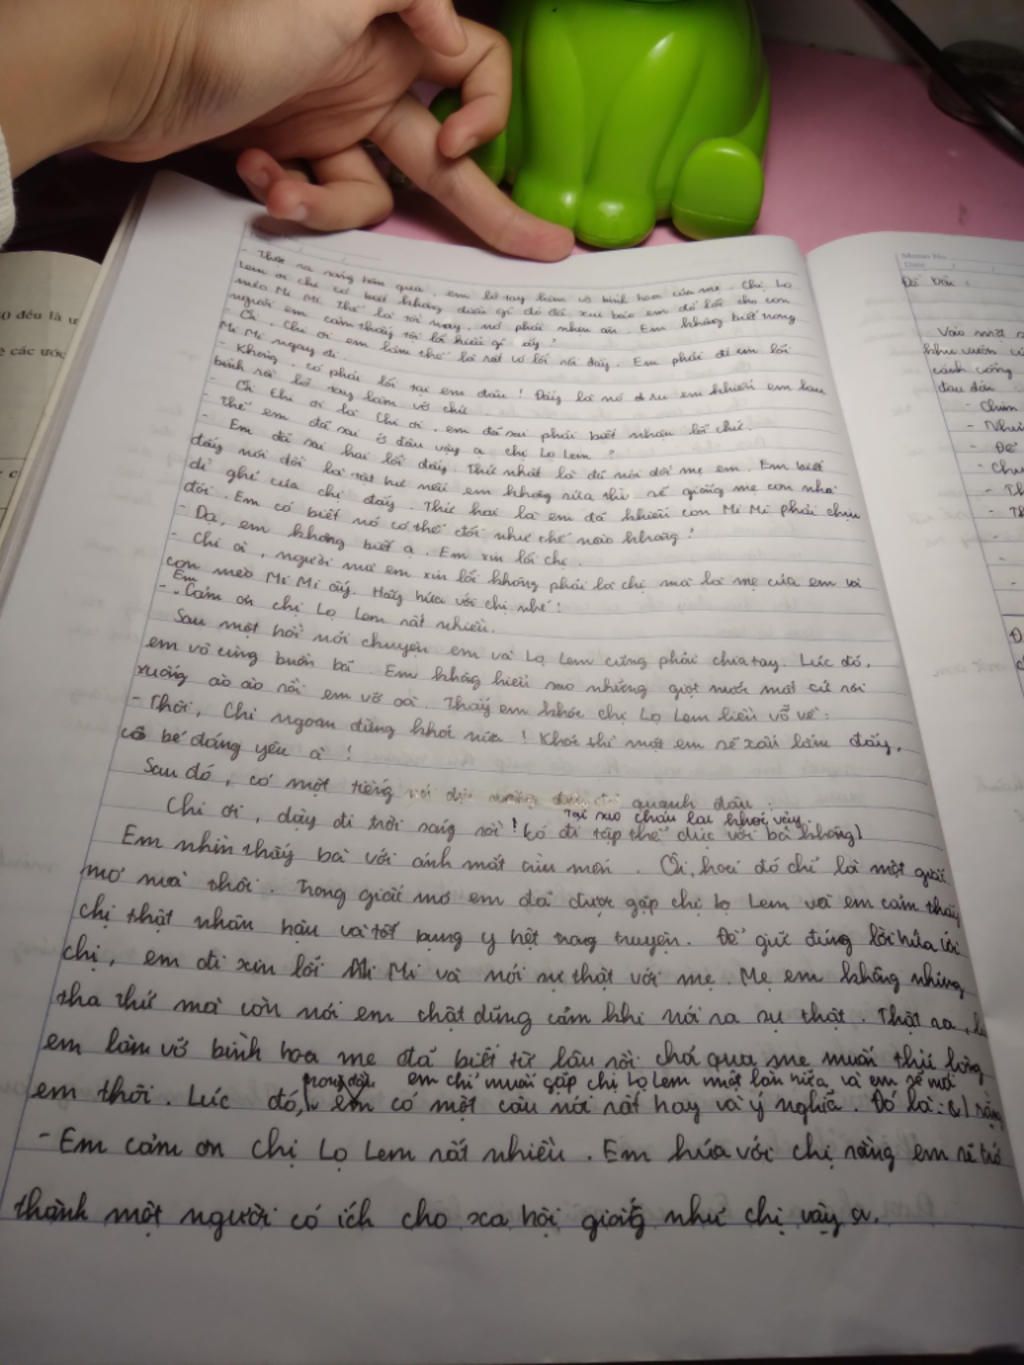 - Thật ra sáng hôm qua, em lỡ tay làm vỡ bình hoa của mẹ. Chị Lọ
Lem ơi chị có biết không
mèo Mi Mi. Thế là tối nay, nó phải nhịn ăn. Em không biết trong
người em cảm thấy tội lỗi kiểu gì ấy?
- Ôi, Chi ơi em làm thế là rất có lỗi rồi đấy. Em phải đi xin lỗi
Mi Mi ngay đi.
- Không, có phải lỗi tại em đâu! Đấy là nó khiến em làm
bình rồi lỡ tay làm vỡ chứ.
- Ôi Chi ơi là Chi ơi, em đã sai phải biết nhận lỗi chứ.
- Thế em đã sai ở đâu vậy ạ chị Lọ Lem?
- Em đã sai hai lỗi đấy. Thứ nhất là đã nói dối mẹ em. Em biết
đấy nói dối là rất hư nếu em không sửa thì sẽ giống mẹ con nhà
dì ghẻ của chị đấy. Thứ hai là em đã khiến con Mi Mi phải chịu
đói. Em có biết nó có thể đói như thế nào không?
- Dạ, em không biết ạ. Em xin lỗi chị.
- Chi ơi, người mà em xin lỗi không phải là chị mà là mẹ của em và
con mèo Mi Mi ấy. Hãy hứa với chị nhé!
- Em Cảm ơn chị Lọ Lem rất nhiều.
Sau một hồi nói chuyện em và Lọ Lem cũng phải chia tay. Lúc đó,
em vô cùng buồn bã. Em không hiểu sao những giọt nước mắt cứ rơi
xuống ào ào rồi em vỡ oà. Thấy em khóc chị Lọ Lem liền vỗ về:
- Thôi, Chi ngoan đừng khóc nữa! Khóc thì mặt em sẽ xấu lắm đấy,
cô bé đáng yêu ạ!
Sau đó, có một tiếng nói quanh đâu:
Chi ơi, dậy đi trời sáng rồi! Tại sao cháu lại khóc vậy. Có đi tập thể dục với bà không)
Em nhìn thấy bà với ánh mắt Ôi, hoá đó chỉ là một giấc
mơ mà thôi. Trong giấc mơ em đã được gặp chị Lọ Lem và em cảm thấy
chị thật nhân hậu và tốt bụng y hệt trong truyện. Để giữ đúng lời hứa với
chị, em đi xin lỗi Mi Mi và nói sự thật với mẹ. Mẹ em không những
tha thứ mà còn nói em thật dũng cảm khi nói ra sự thật. Thật ra,
em làm vỡ bình hoa mẹ đã biết từ lâu rồi chả qua mẹ muốn thử lòng
em thôi. Lúc đó, em chỉ muốn gặp chị Lọ Lem một lần nữa và em sẽ nói
em có một câu nói rất hay và ý nghĩa. Đó là:
- Em cảm ơn chị Lọ Lem rất nhiều. Em hứa với chị rằng em sẽ trở
thành một người có ích cho xã hội giống như chị vậy ạ.
Đề bài:
Vào một
khu vườn
cánh cổng
đau đớn
- Chim
- Nhưng
- Để
- Chu
- Th